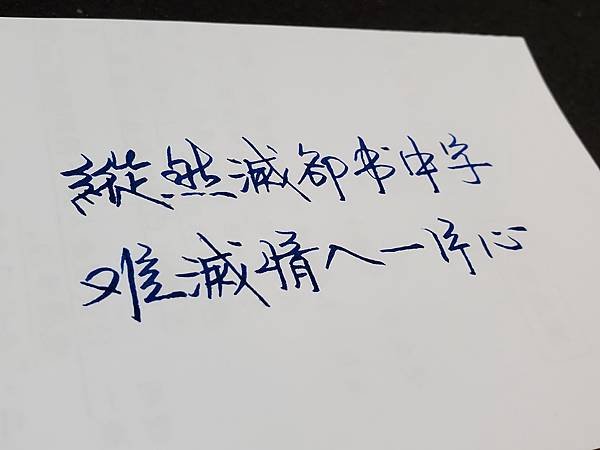 縱然滅卻书中字
难滅情人一片心